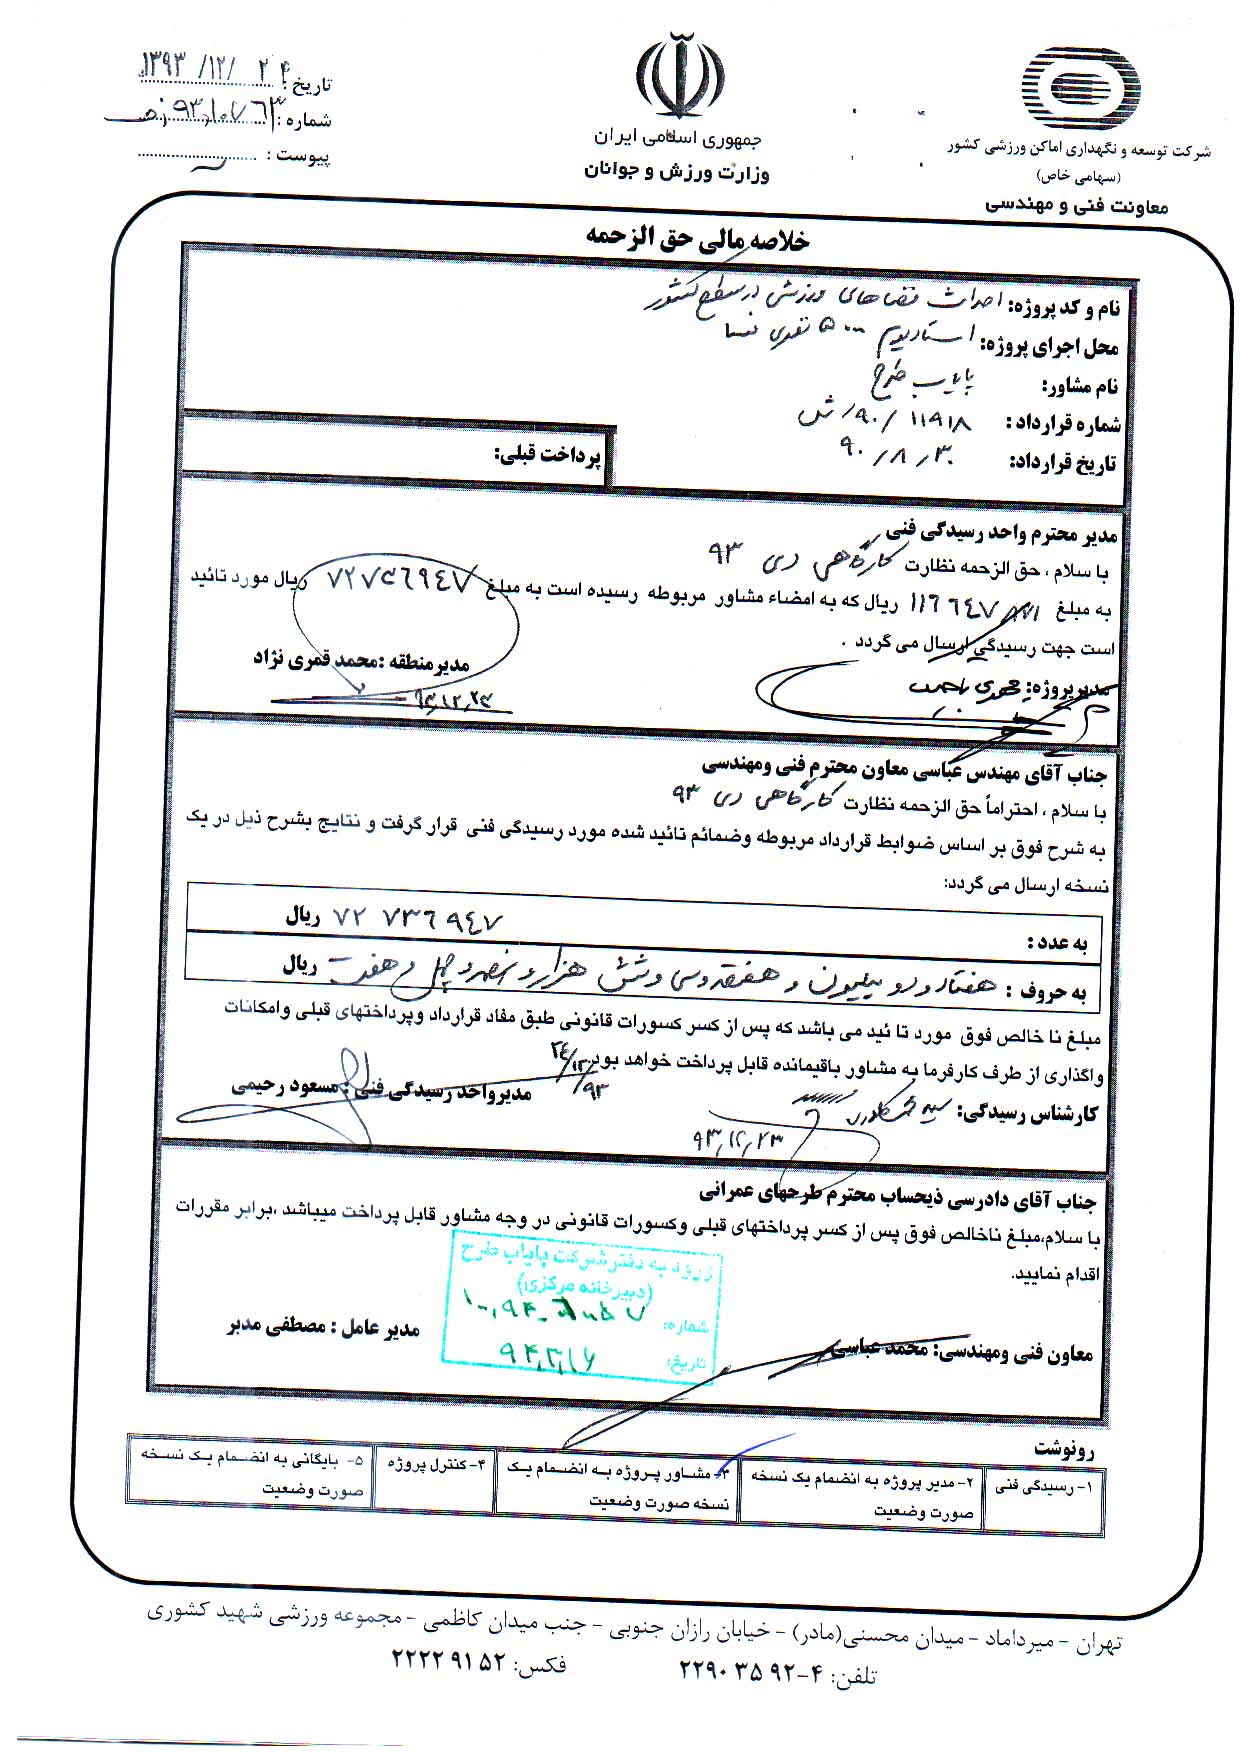 تاریخ : ۱۳۹۳/۱۲/۲۴
شماره :
پیوست :
جمهوری اسلامی ایران
وزارت ورزش و جوانان
شرکت توسعه و نگهداری اماکن ورزشی کشور
(سهامی خاص)
معاونت فنی و مهندسی
خلاصه مالی حق الزحمه
نام و کد پروژه: احداث فضاهای ورزشی در سطح کشور
محل اجرای پروژه: استادیوم ۵۰۰۰ نفری فسا
نام مشاور: پایاب طرح
شماره قرارداد : ۹۰/۱۱۹۱۸/ش
تاریخ قرارداد: ۹۰/۸/۳۰
پرداخت قبلی:
مدیر محترم واحد رسیدگی فنی
با سلام ، حق الزحمه نظارت کارگاهی دی ۹۳
به مبلغ ۱۱۶ ۶۴۷ ۸۷۱ ریال که به امضاء مشاور مربوطه رسیده است به مبلغ ۷۲۷۳۶۹۴۷ ریال مورد تائید
است جهت رسیدگی ارسال می گردد .
مدیرپروژه:
مدیرمنطقه :محمد قمری نژاد
۹۳,۱۲,۲۳
جناب آقای مهندس عباسی معاون محترم فنی ومهندسی
با سلام ، احتراماً حق الزحمه نظارت کارگاهی دی ۹۳
به شرح فوق بر اساس ضوابط قرارداد مربوطه وضمائم تائید شده مورد رسیدگی فنی قرار گرفت و نتایج بشرح ذیل در یک
نسخه ارسال می گردد:
به عدد : ۷۲ ۷۳۶ ۹۴۷ ریال
به حروف : هفتاد و دو میلیون و هفتصدوسی وشش هزار و نهصد و چهل و هفت ریال
مبلغ نا خالص فوق مورد تا ئید می باشد که پس از کسر کسورات قانونی طبق مفاد قرارداد وپرداختهای قبلی وامکانات
واگذاری از طرف کارفرما به مشاور باقیمانده قابل پرداخت خواهد بود.
کارشناس رسیدگی:
۹۳,۱۲,۲۳
مدیرواحد رسیدگی فنی : مسعود رحیمی
۲۴/۱۲/۹۳
جناب آقای دادرسی ذیحساب محترم طرحهای عمرانی
با سلام،مبلغ ناخالص فوق پس از کسر پرداختهای قبلی وکسورات قانونی در وجه مشاور قابل پرداخت میباشد ،برابر مقررات
اقدام نمایید.
ورود به دفترشرکت پایاب طرح
(دبیرخانه مرکزی)
شماره:
تاریخ:
معاون فنی ومهندسی: محمد عباسی
مدیر عامل : مصطفی مدبر
رونوشت
۱- رسیدگی فنی
۲- مدیر پروژه به انضمام یک نسخه
صورت وضعیت
۳- مشاور پروژه به انضمام یک
نسخه صورت وضعیت
۴- کنترل پروژه
۵- بایگانی به انضمام یک نسخه
صورت وضعیت
تهران – میرداماد – میدان محسنی(مادر) – خیابان رازان جنوبی – جنب میدان کاظمی – مجموعه ورزشی شهید کشوری
تلفن: ۴–۲۲۹۰۳۵۹۲ فکس: ۲۲۲۲۹۱۵۲